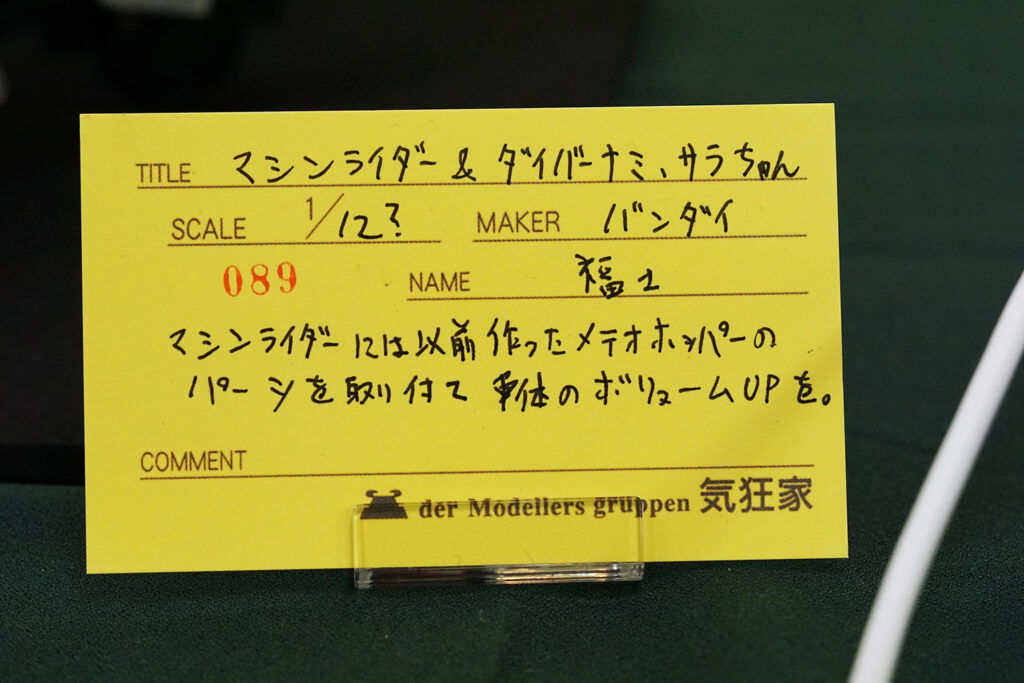 TITLE マシンライダー & ダイバーナミ、サラちゃん
SCALE 1/12? MAKER バンダイ
089 NAME 福士
マシンライダーには以前作ったメテオホッパーの
パーツを取り付て 車体のボリュームUPを。
COMMENT
der Modellers gruppen 気狂家